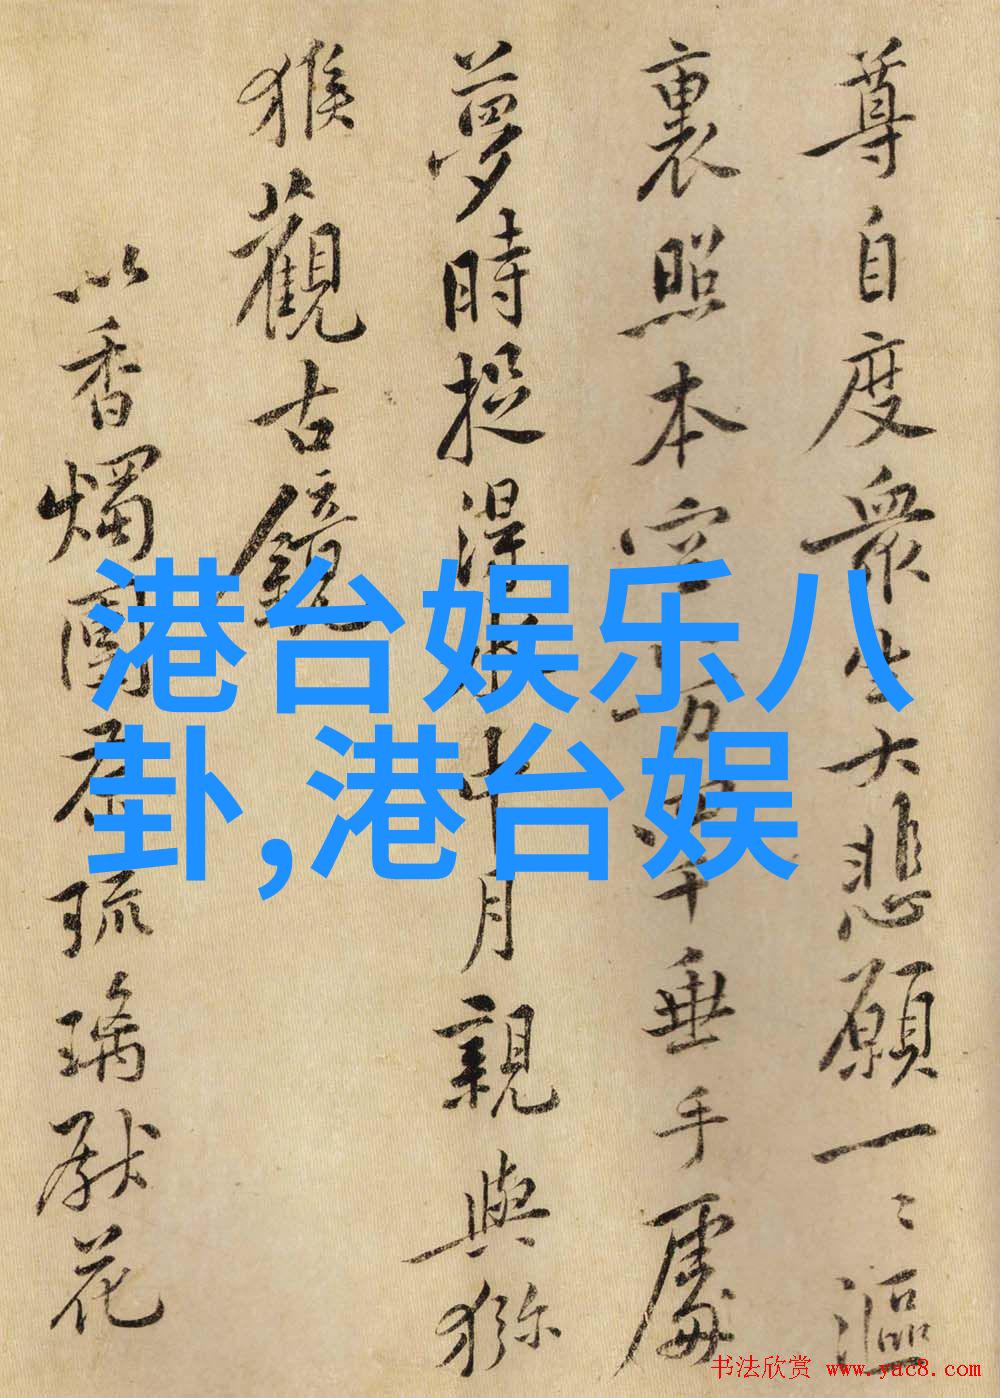 尊自度衆生大悲願一〻漚
裏照本空
垂手處
夢時捉得水中月親與猕
猴觀古鏡
以香燭
琉璃獻花
港台娱乐八
卦,港台娱
书法欣赏 www.yac8.com